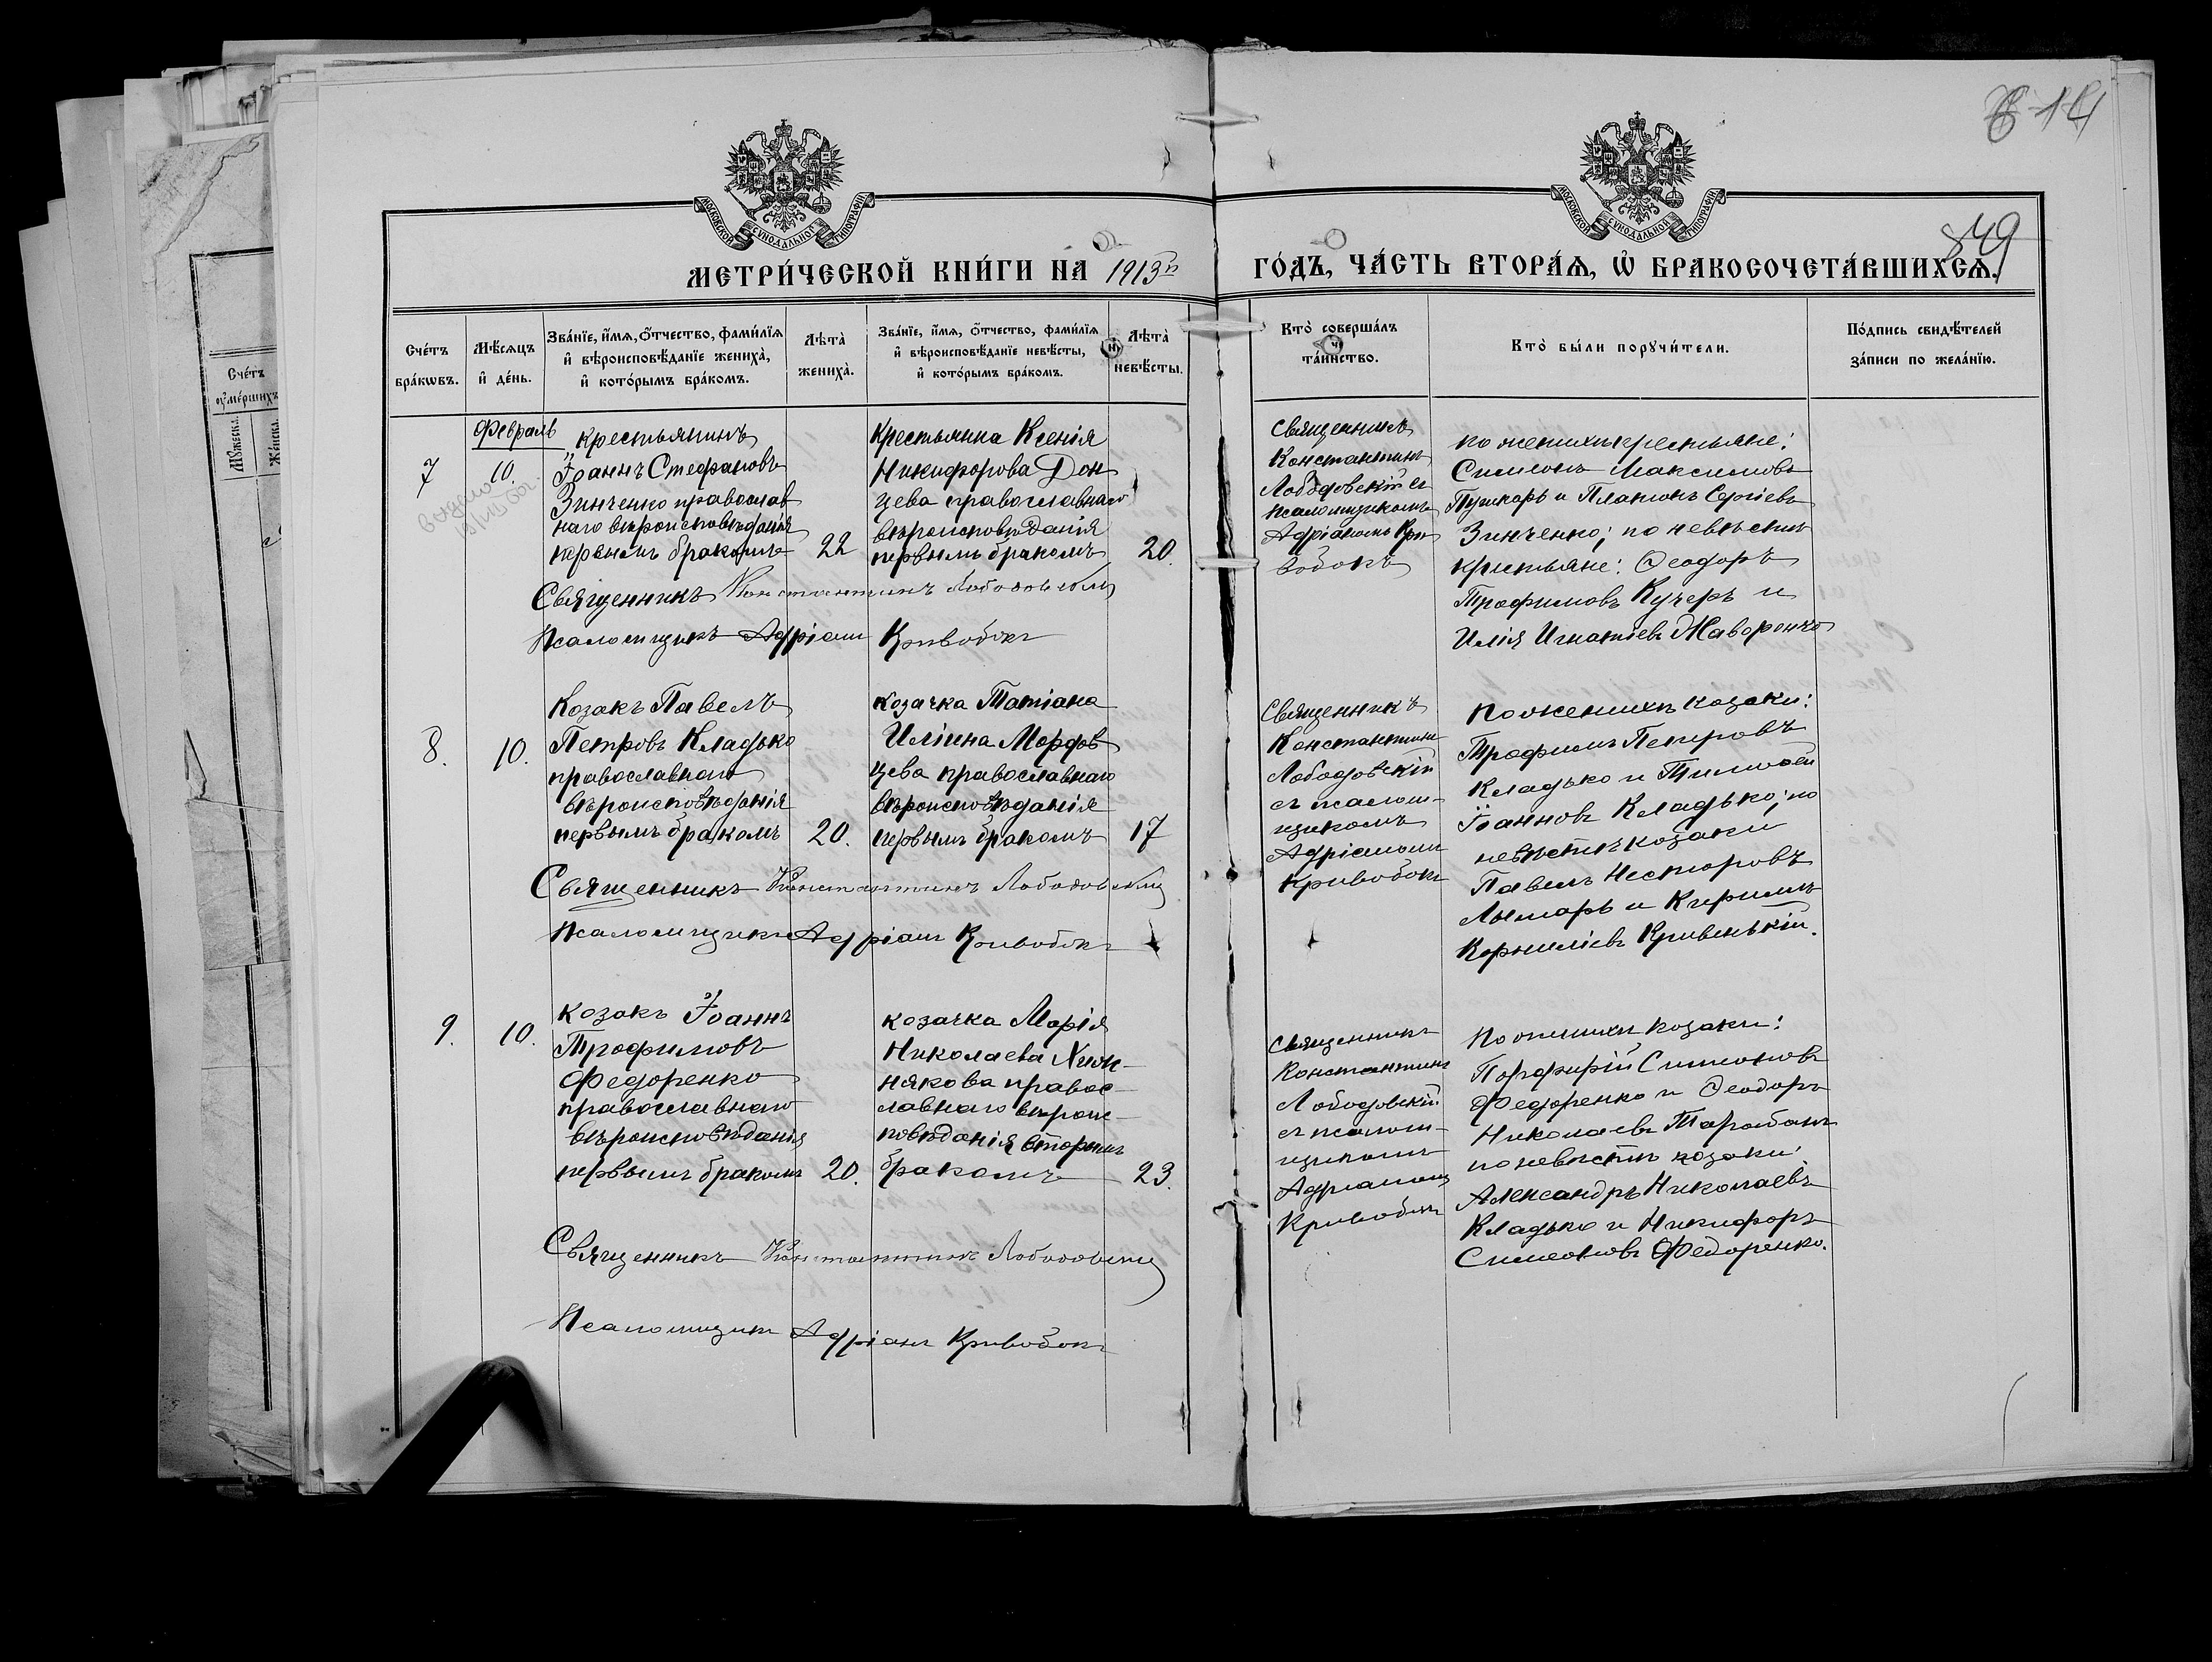 849
МОСКОВСКОЙ СѴНОДАЛЬНОЙ ТИПОГРАФІИ
МОСКОВСКОЙ СѴНОДАЛЬНОЙ ТИПОГРАФІИ
МЕТРИ́ЧЕСКОЙ КНИ́ГИ НА 1913й ГО́ДЪ, ЧА́СТЬ ВТОРА́Ѧ, Ѽ БРАКОСОЧЕТА́ВШИХСѦ.
Сче́тъ
бра́кѡвъ.
Мѣ́сѧцъ
и҆ де́нь.
Зва́нїе, и҆́мѧ, ѻ҆́тчество, фами́лїѧ
и҆ вѣроисповѣ́данїе жениха̀,
и҆ кото́рымъ бра́комъ.
Лѣта̀
жениха̀.
Зва́нїе, и҆́мѧ, ѻ҆́тчество, фами́лїѧ
и҆ вѣроисповѣ́данїе невѣ́сты,
и҆ кото́рымъ бра́комъ.
Лѣта̀
невѣ́сты.
Кто̀ соверша́лъ
та́инство.
Кто̀ бы́ли порꙋчи́тели.
По́дпись свидѣ́телей
за́писи по жела́нїю.
Сче́тъ
ᲂу҆ме́ршихъ
Мꙋ́жеска.
Же́нска.
Февраль
7
10.
крестьянинъ
Іоаннъ Стефановъ
Зинченко православ
наго вѣроисповѣданія
первымъ бракомъ
22
Крестьянка Ксенія
Никифорова Дон
цева православнаго
вѣроисповѣданія
первымъ бракомъ
20.
Священникъ
Константинъ
Лободовскій съ
псаломщикомъ
Адріаномъ Кри
вобокъ
по женихѣ крестьяне:
Симеонъ Максимовъ
Пушкарь и Платонъ Сергіевъ
Зинченко; по невѣстѣ
крестьяне: Ѳеодоръ
Трофимовъ Кучеръ и
Илія Игнатіевъ Жаворонко
Священникъ Константинъ Лободовскій
Псаломщикъ Адріанъ Кривобокъ
8.
10.
Козакъ Павелъ
Петровъ Кладько
православнаго
вѣроисповѣданія
первымъ бракомъ
20.
козачка Татіана
Иліина Мордов
цева православнаго
вѣроисповѣданія
первымъ бракомъ
17
Священникъ
Константинъ
Лободовскій
съ псалом-
щикомъ
Адріаномъ
Кривобокъ
по женихѣ козаки:
Трофимъ Петровъ
Кладько и Тимоѳей
Іоанновъ Кладько; по
невѣстѣ козаки
Павелъ Несторовъ
Лымарь и Кирилъ
Корниліевъ Кривенькій.
Священникъ Константинъ Лободовскій
Псаломщикъ Адріанъ Кривобокъ
9.
10.
козакъ Іоаннъ
Трофимовъ
Федоренко
православнаго
вѣроисповѣданія
первымъ бракомъ
20.
козачка Марія
Николаева
някова правос-
лавнаго вѣроис-
повѣданія вторымъ
бракомъ
23.
Священникъ
Константинъ
Лободовскій
съ псалом-
щикомъ
Адріаномъ
Кривобокъ
По женихѣ козаки:
Порфирій Симеоновъ
Федоренко и Ѳеодоръ
Николаевъ Тарабанъ
по невѣстѣ козаки:
Александръ Николаевъ
Кладько и Никифоръ
Симеоновъ Федоренко.
Священникъ Константинъ Лободовскій
Псаломщикъ Адріанъ Кривобокъ